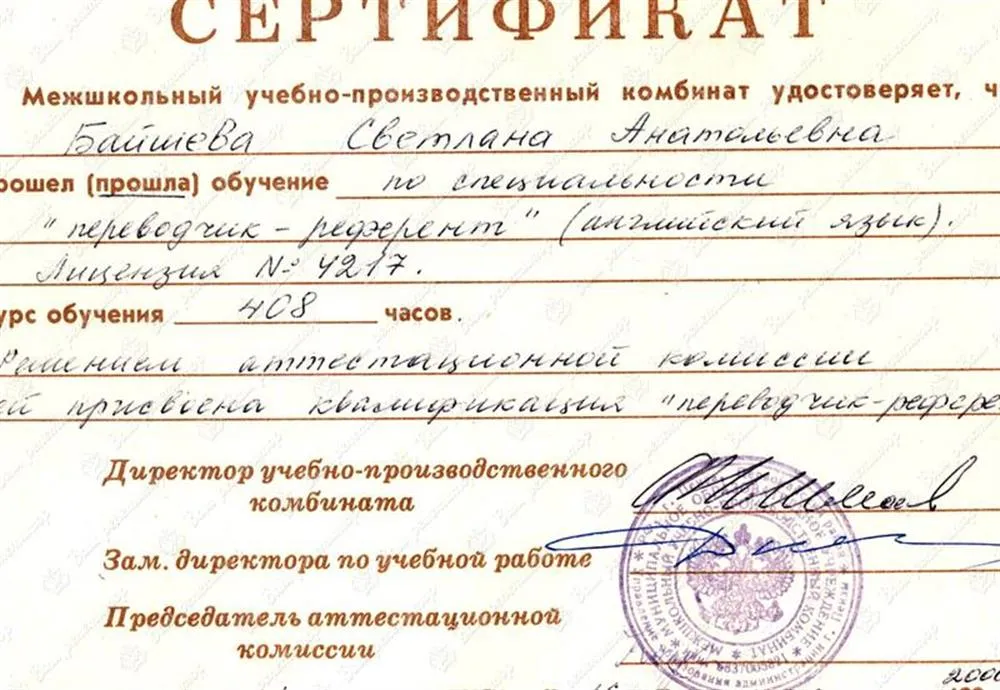 СЕРТИФИКАТ
Межшкольный учебно-производственный комбинат удостоверяет, ч
Байшева Светлана Анатольевна
рошел (прошла) обучение по специальности
"переводчик-референт" (английский язык).
Лицензия № 4217.
урс обучения 408 часов.
Решением аттестационной комиссии
ей присвоена квалификация "переводчик-рефере
Директор учебно-производственного
комбината
Зам. директора по учебной работе
Председатель аттестационной
комиссии